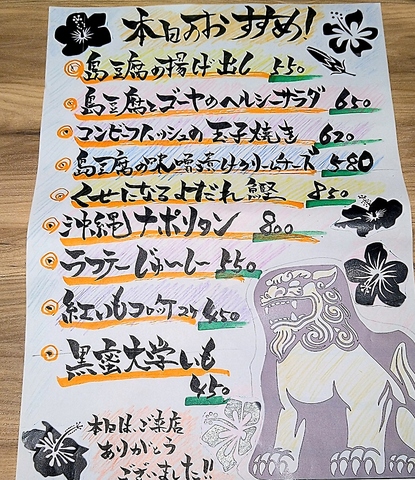 本日のおすすめ!
島豆腐の揚げ出し 550
島豆腐とゴーヤのヘルシーサラダ 650
コンビーフハッシュの玉子焼き 620
島豆腐の味噌漬けクリームチーズ 580
くせになるよだれ鰹 850
沖縄ナポリタン 800
ラフテーじゅ〜し〜 550
紅いもコロッケ 2コ 450
黒蜜大学いも 450
本日は、ご来店
ありがとう
ございました!!